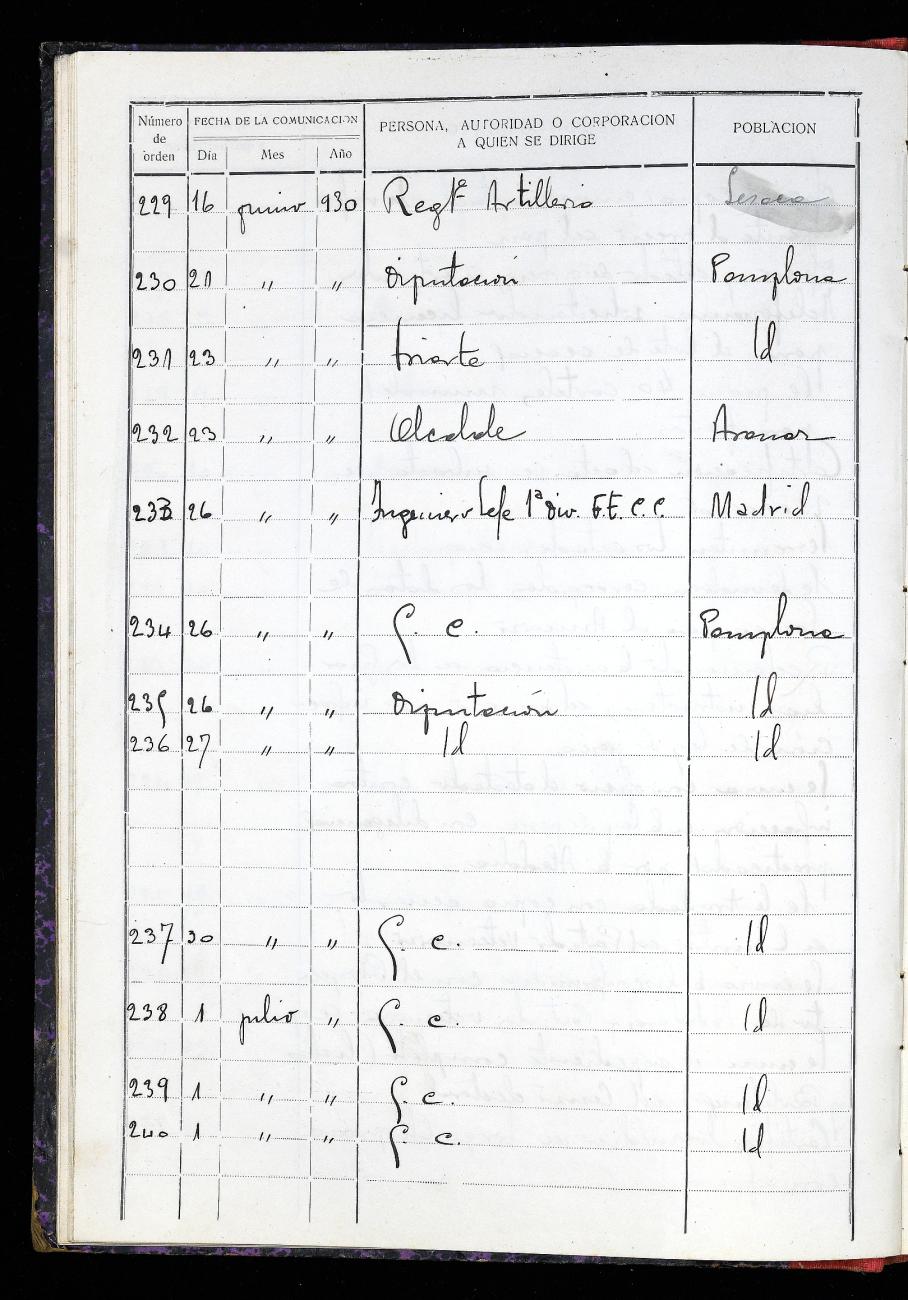 Número de orden FECHA DE LA COMUNICACION PERSONA, AUTORIDAD O CORPORACION A QUIEN SE DIRIGE POBLACION
Día Mes Año
229 16 junio 930 Regtº Artilleria
230 21 " " Diputación Pamplona
231 23 " " Iriarte Id
232 23 " " Alcalde Aranaz
233 26 " " Ingeniero Jefe 1ª Div. F.E. C.C. Madrid
234 26 " " G. C. Pamplona
235 26 " " Diputación Id
236 27 " " Id Id
237 30 " " G. C. Id
238 1 julio " G. C. Id
239 1 " " G. C. Id
240 1 " " G. C. Id